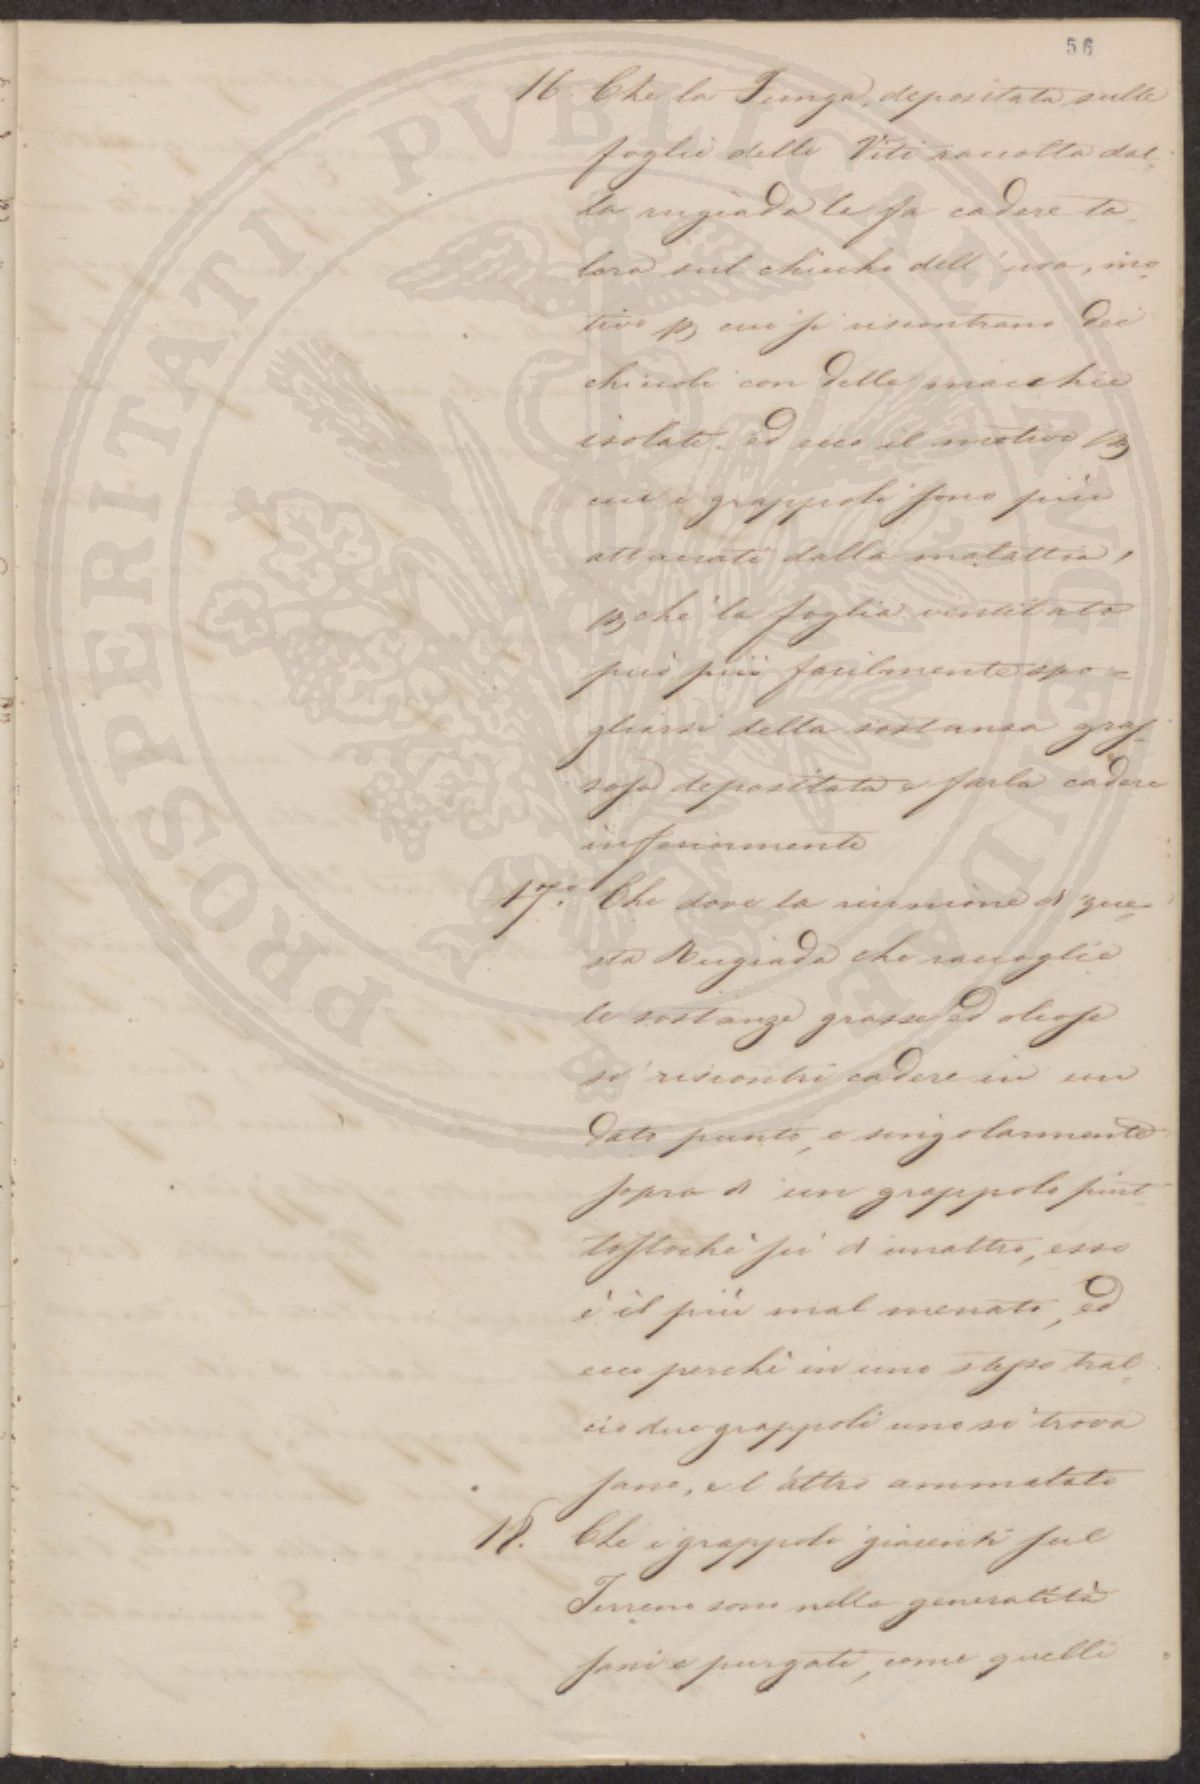 56
16. Che la Funga, depositata sulle
foglie delle Viti raccolta dal-
la rugiada la fa cadere ta-
lora sul chiccho dell'uva, mo-
tivo p cui si riscontrano dei
chiccoli con delle macchie
isolate. ed ecco il motivo p
cui i grappoli sono più
attaccati dalla malattia,
pchè la foglia ventilata
può più facilmente spo=
gliarsi della sostanza gras-
sosa depositata e farla cadere
inferiormente
17.° Che dove la riunione di que-
sta Rugiada che raccoglie
le sostanze grasse ed oliose
si riscontri cadere in un
dato punto, e singolarmente
sopra di un grappolo piut-
tostochè su di un altro, esso
è il più mal menato, ed
ecco perchè in uno stesso tral-
cio due grappoli uno si trova
sano, e l'altro ammalato
18. Che i grappoli giacenti sul
Terreno sono nella generalità
sani e purgati, come quelli
PROSPERITATI PVBLICAE AVGENDAE